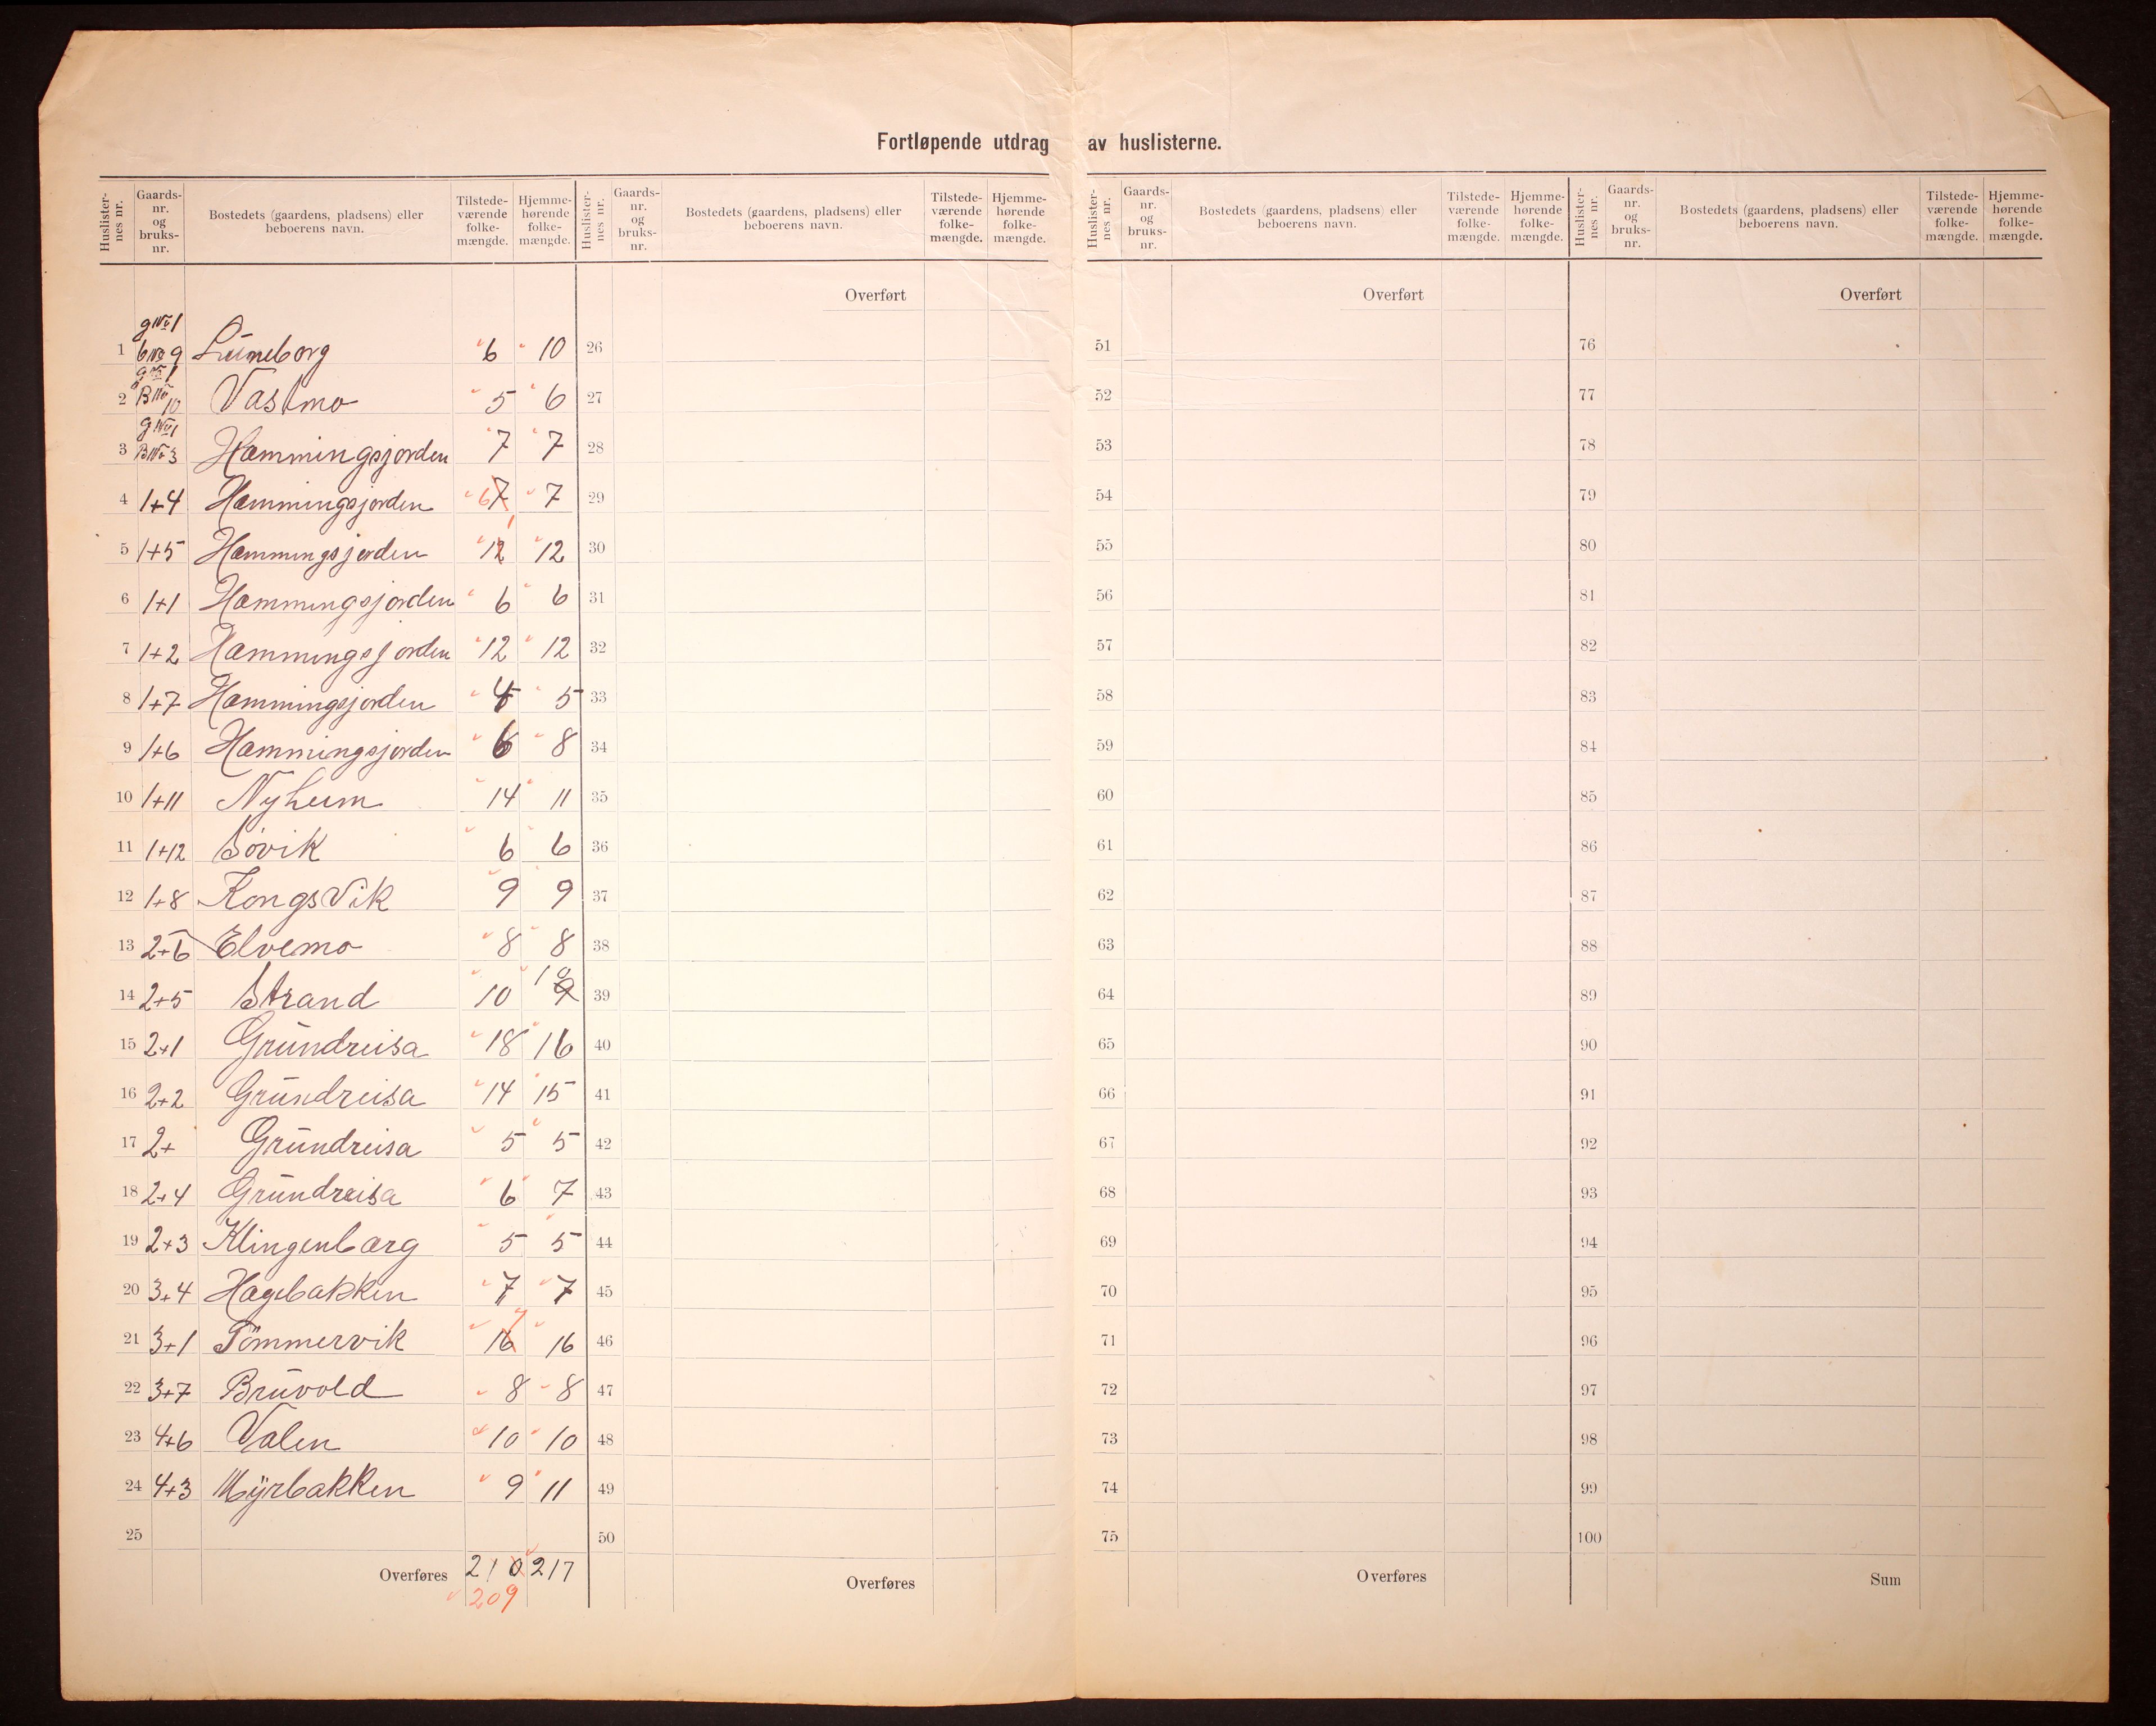 Fortløpende utdrag av huslisterne.
Huslisternes nr. Gaards-nr. og bruks-nr. Bostedets (gaardens, pladsens) eller beboerens navn. Tilstede-værende folke-mængde. Hjemme-hørende folke-mængde. Huslisternes nr. Gaards-nr. og bruks-nr. Bostedets (gaardens, pladsens) eller beboerens navn. Tilstede-værende folke-mængde. Hjemme-hørende folke-mængde. Huslisternes nr. Gaards-nr. og bruks-nr. Bostedets (gaardens, pladsens) eller beboerens navn. Tilstede-værende folke-mængde. Hjemme-hørende folke-mængde. Huslisternes nr. Gaards-nr. og bruks-nr. Bostedets (gaardens, pladsens) eller beboerens navn. Tilstede-værende folke-mængde. Hjemme-hørende folke-mængde.
Overført Overført Overført
g No 1
1 b No 9 Lüneborg 6 10 26 51 76
g No 1
2 B No 10 Vasmo 5 6 27 52 77
g No 1
3 B No 3 Hæmmingsjorden 7 7 28 53 78
4 1+4 Hæmmingsjorden 6 7 7 29 54 79
5 1+5 Hæmmingsjorden 12 12 30 55 80
6 1+1 Hæmmingsjorden 6 6 31 56 81
7 1+2 Hæmmingsjorden 12 12 32 57 82
8 1+7 Hæmmingsjorden 4 5 33 58 83
9 1+6 Hæmmingsjorden 6 8 34 59 84
10 1+11 Nyheim 14 11 35 60 85
11 1+12 Søvik 6 6 36 61 86
12 1+8 KongsVik 9 9 37 62 87
13 2+6 Elvemo 8 8 38 63 88
14 2+5 Strand 10 10 9 39 64 89
15 2+1 Gründreisa 18 16 40 65 90
16 2+2 Gründreisa 14 15 41 66 91
17 2+ Gründreisa 5 5 42 67 92
18 2+4 Gründreisa 6 7 43 68 93
19 2+3 Klingenbærg 5 5 44 69 94
20 3+4 Hagebakken 7 7 45 70 95
21 3+1 Tömmervik 16 7 16 46 71 96
22 3+7 Brüvold 8 8 47 72 97
23 4+6 Valen 10 10 48 73 98
24 4+3 Mÿrbakken 9 11 49 74 99
25 50 75 100
Overføres 210 217 Overføres Overføres Sum
209